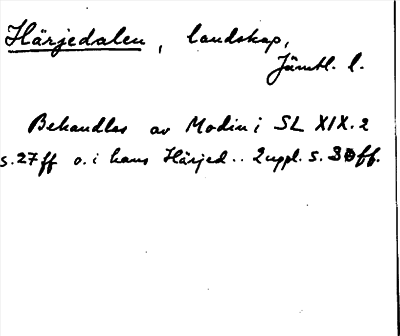 Härjedalen, landskap,
Jämtl. l.
Behandlas av Modin i SL XIX.2
s.27ff o. i hans Härjed.. 2 uppl. s. 30ff.